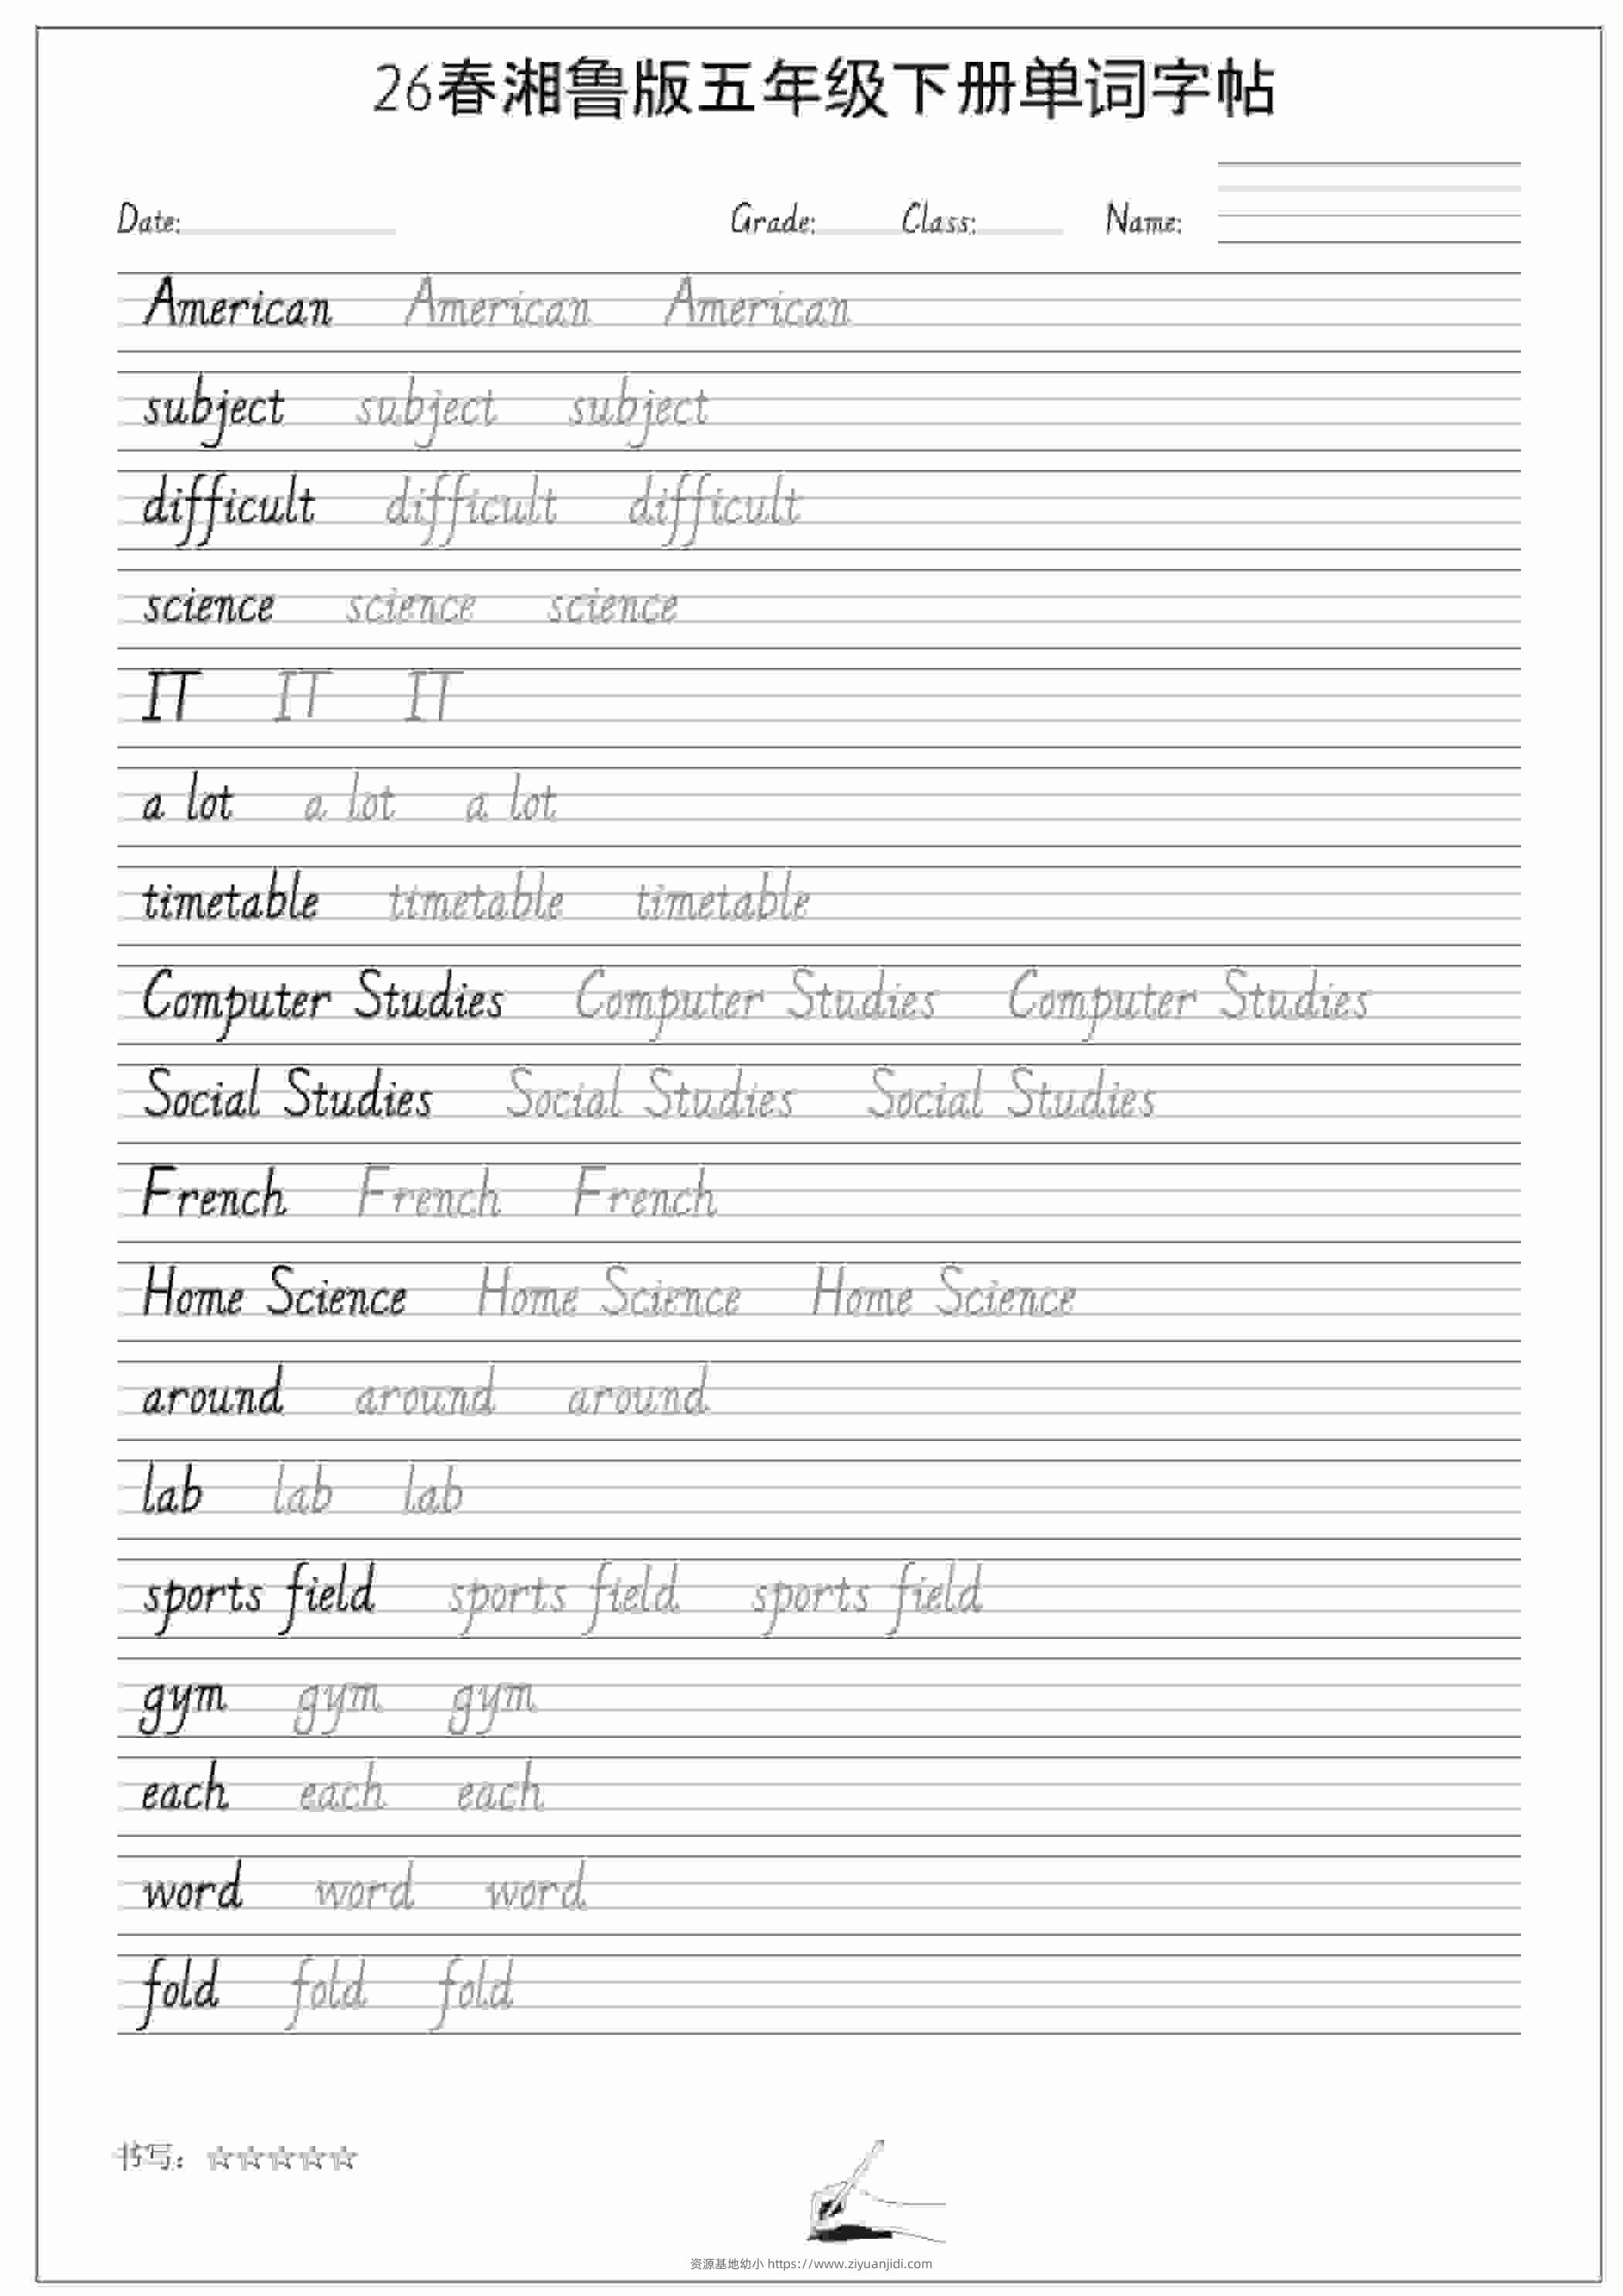 26春湘鲁版五年级下册单词字帖
Date: Grade: Class: Name:
American American American
subject subject subject
difficult difficult difficult
science science science
IT IT IT
a lot a lot a lot
timetable timetable timetable
Computer Studies Computer Studies Computer Studies
Social Studies Social Studies Social Studies
French French French
Home Science Home Science Home Science
around around around
lab lab lab
sports field sports field sports field
gym gym gym
each each each
word word word
fold fold fold
书写：☆☆☆☆☆
资源基地幼小 https://www.ziyuanjidi.com